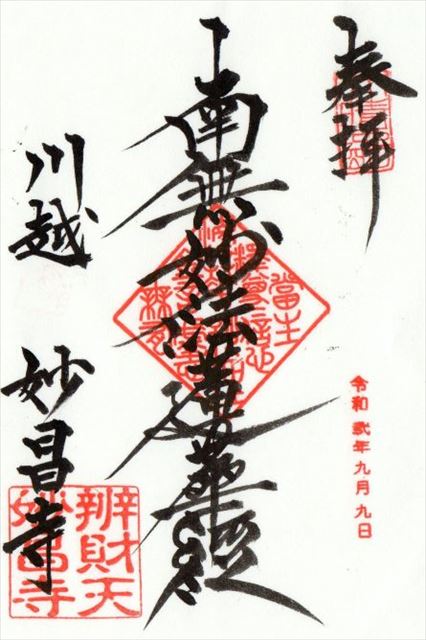 奉拝
令和弐年九月九日
南無妙法蓮華経
川越
妙昌寺
辨財天
妙昌寺